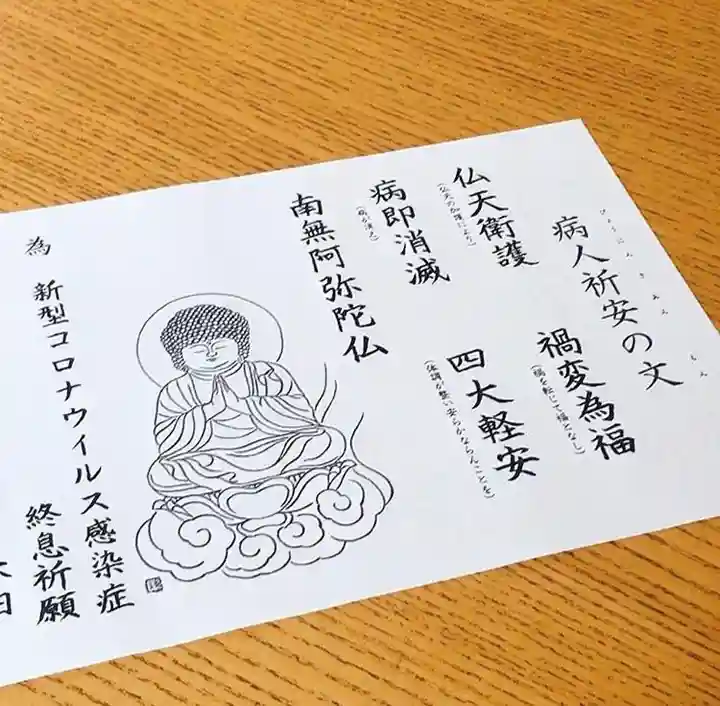 びょうにんきあん もん
病人祈安の文
仏天衛護 禍変為福
(仏天の加護により) (禍を転じて福となし)
病即消滅 四大軽安
(病が消え) (体調が整い安らかならんことを)
南無阿弥陀仏
為 新型コロナウイルス感染症
終息祈願